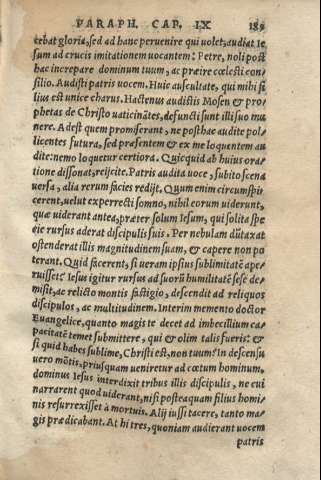 PARAPH. CAP. IX 189
cebat gloria, sed ad hanc peruenire qui uolet, audiat Ie
sum ad crucis imitationem uocantem: Petre, noli post
hac increpare dominum tuum, ac præire cœlesti con
silio. Audisti patris uocem. Huic auscultate, qui mihi fi
lius est unice charus. Hactenus audistis Mosen & pro⸗
phetas de Christo uaticinātes, defuncti sunt illi suo mu
nere. Adest quem promiserant, ne posthac audite pol⸗
licentes futura, sed præsentem & ex me loquentem au
dite: nemo loquetur certiora. Quicquid ab huius ora⸗
tione dissonat, reijcite. Patris audita uoce, subito scena
uersa, alia rerum facies redijt. Quum enim circumspi⸗
cerent, uelut experrecti somno, nihil eorum uiderunt,
quæ uiderant antea, præter solum Iesum, qui solita spe
cie rursus aderat discipulis suis. Per nebulam dūtaxat
ostenderat illis magnitudinem suam, & capere non po
terant. Quid facerent, si ueram ipsius sublimitatē ape⸗
ruisset? Iesus igitur rursus ad suorū humilitatē sese de⸗
misit, ac relicto montis fastigio, descendit ad reliquos
discipulos, ac multitudinem. Interim memento doctor
Euangelice, quanto magis te decet ad imbecillium ca⸗
pacitatē temet submittere, qui & olim talis fueris: &
si quid habes sublime, Christi est, non tuum? In descensu
uero mōtis, priusquam ueniretur ad cœtum hominum,
dominus Iesus interdixit tribus illis discipulis, ne cui
narrarent quod uiderant, nisi posteaquam filius homi⸗
nis resurrexisset à mortuis. Alij iussi tacere, tanto ma⸗
gis prædicabant. At hi tres, quoniam audierant uocem
patris